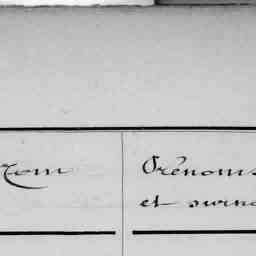 Nom
Prénoms
et surno